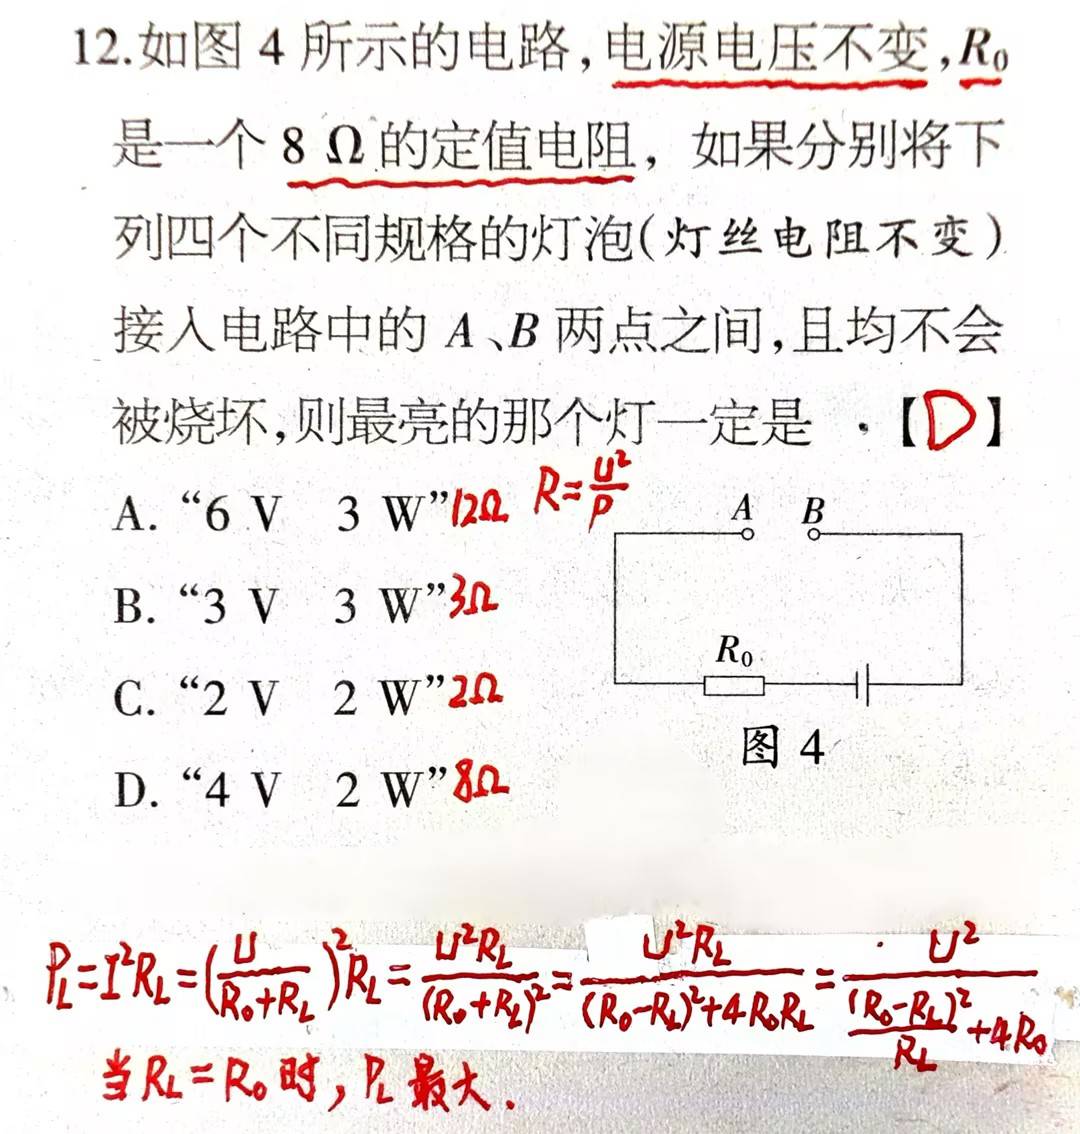 12.如图 4 所示的电路,电源电压不变,R₀
是一个 8 Ω 的定值电阻, 如果分别将下
列四个不同规格的灯泡(灯丝电阻不变)
接入电路中的 A、B 两点之间,且均不会
被烧坏,则最亮的那个灯一定是 . 【D】
A. “6 V 3 W”12Ω R=U²/P
B. “3 V 3 W”3Ω
C. “2 V 2 W”2Ω
D. “4 V 2 W”8Ω
A B
R₀
图 4
P_L=I²R_L=(U/(R₀+R_L))²R_L=U²R_L/(R₀+R_L)²=U²R_L/((R₀-R_L)²+4R₀R_L)=U²/((R₀-R_L)²/R_L+4R₀)
当 R_L=R₀ 时, P_L 最大.